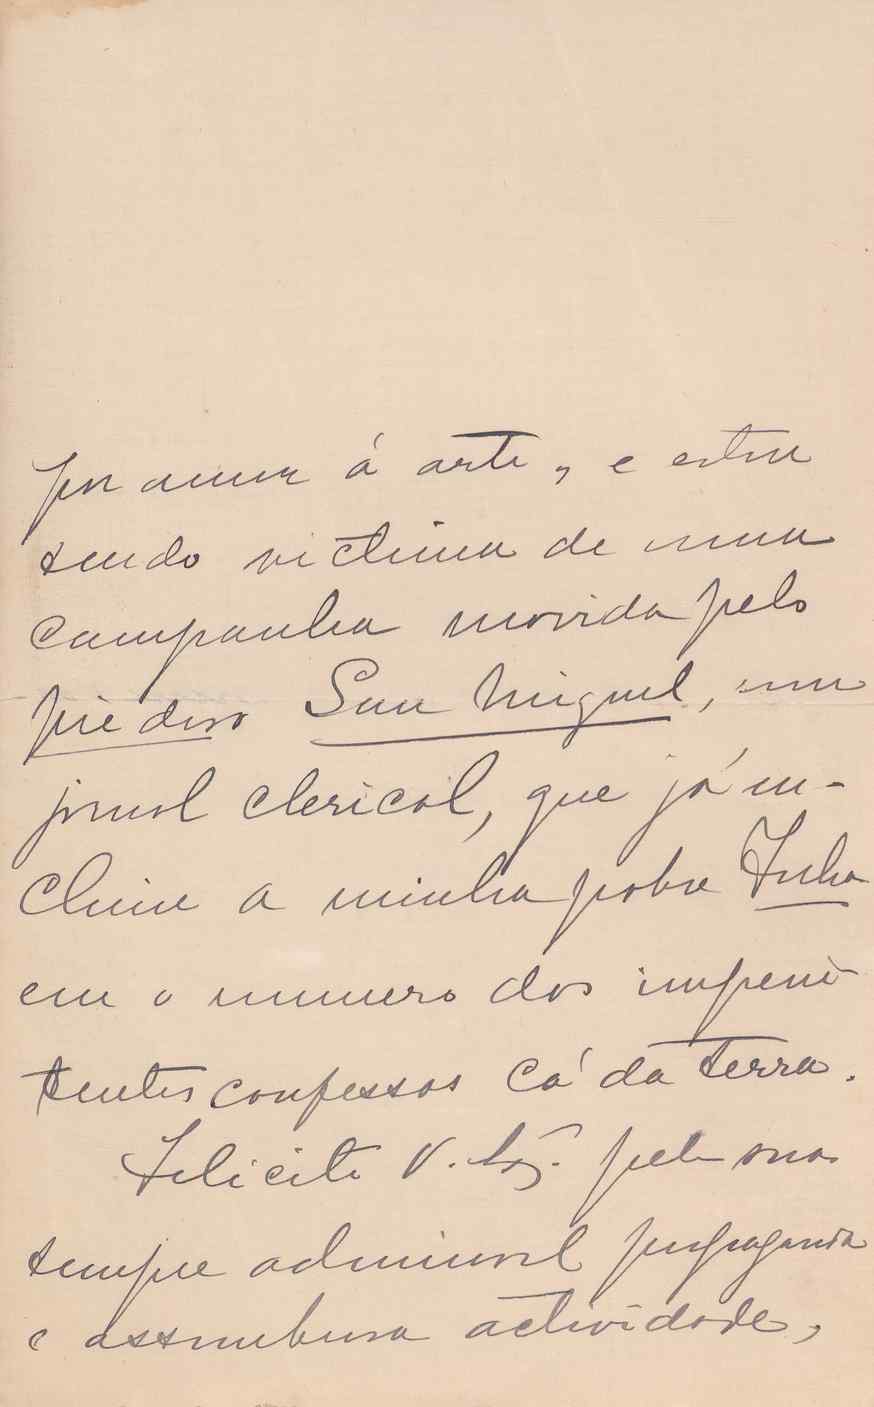 por amor á arte, e estou
sendo victima de uma
campanha movida pelo
piedoso San Miguel, um
jornal clerical, que já in-
cluiu a minha pobre Folha
em o numero dos impeni-
tentes confessos cá da terra.
Felicito V. Exª. pela sua
sempre admiravel propaganda
e assombrosa actividade,